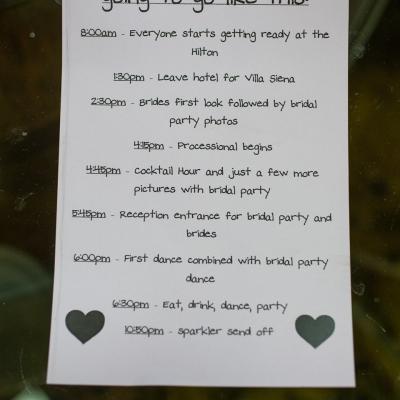 going to go like this:
8:00am - Everyone starts getting ready at the
Hilton
1:30pm - Leave hotel for Villa Siena
2:30pm - Brides first look followed by bridal
party photos
4:15pm - Processional begins
4:45pm - Cocktail Hour and just a few more
pictures with bridal party
5:45pm - Reception entrance for bridal party and
brides
6:00pm - First dance combined with bridal party
dance
6:30pm - Eat, drink, dance, party
10:50pm - sparkler send off